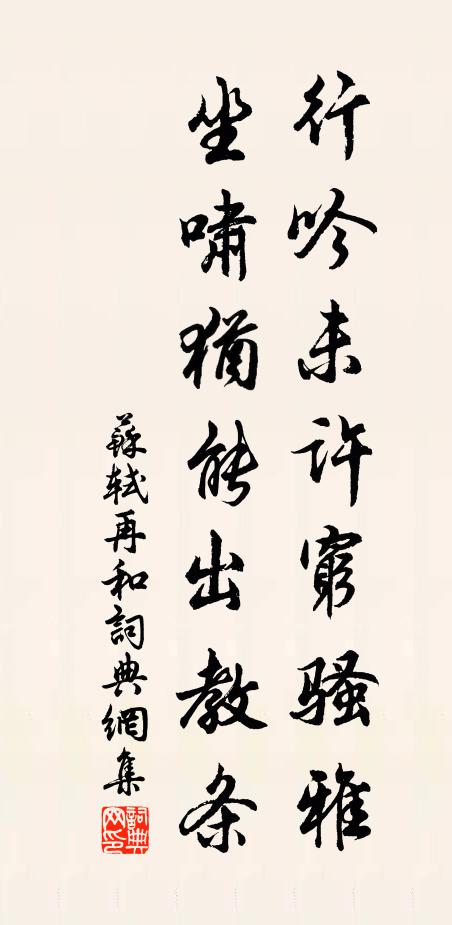 行吟未许窮骚雅
坐嘯猶能出教条
蘇軾再和詞典網集
詞典網印